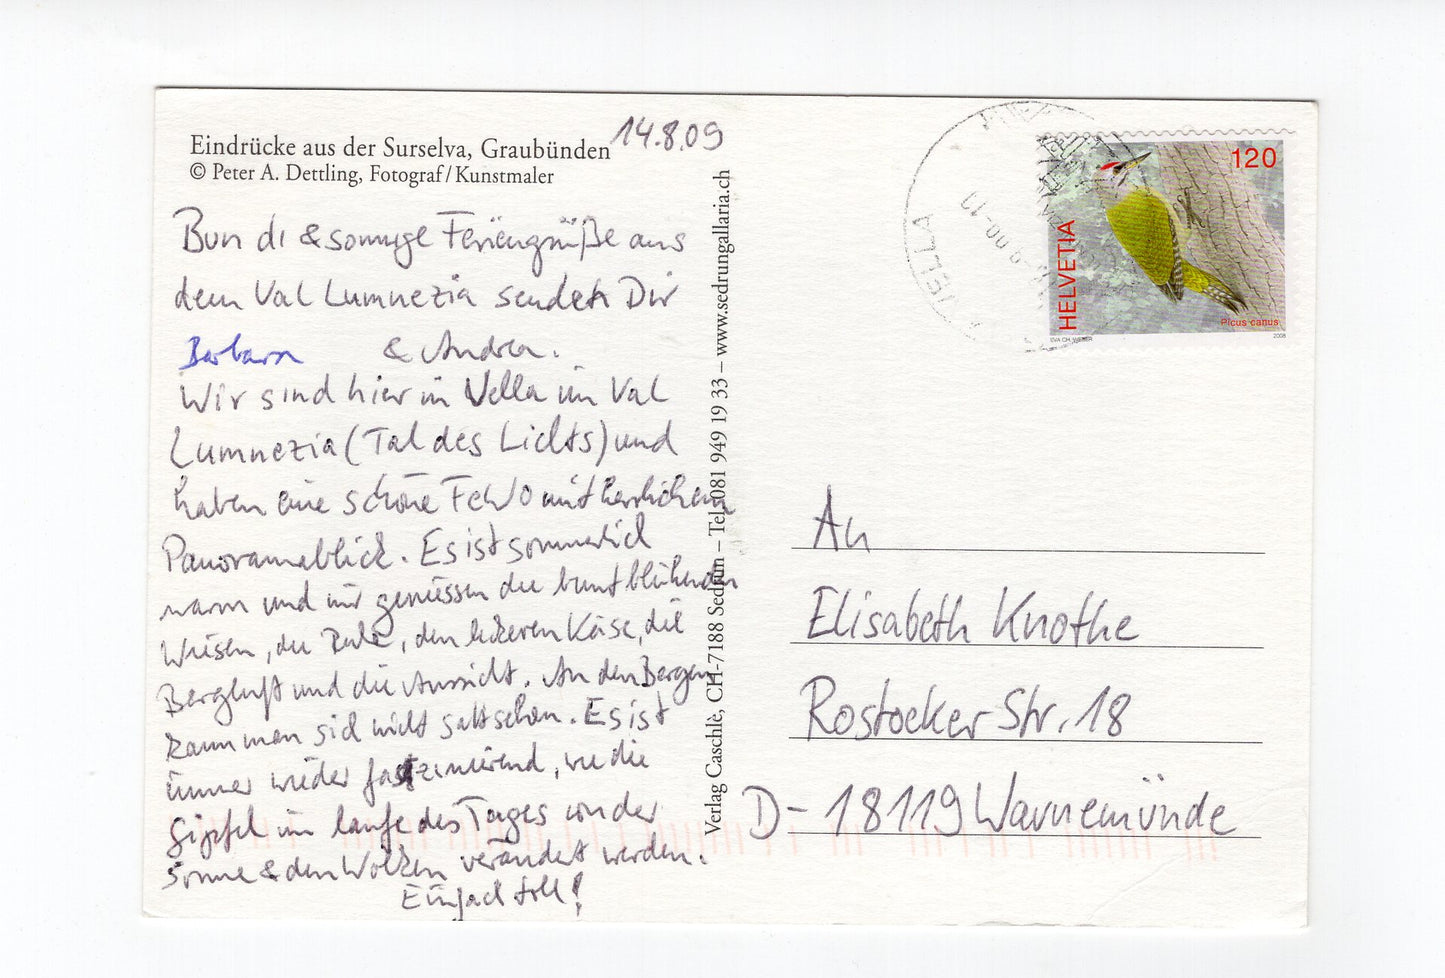 Eindrücke aus der Surselva, Graubünden
© Peter A. Dettling, Fotograf/Kunstmaler
14.8.09
Bun di & sonnige Feriengrüße aus
dem Val Lumnezia senden Dir
Barbara & Andrea.
Wir sind hier in Vella im Val
Lumnezia (Tal des Lichts) und
haben eine schöne FeWo mit herrlichem
Panoramablick. Es ist sommerlich
warm und wir geniessen die bunt blühenden
Wiesen, die Ruhe, den leckeren Käse, die
Bergluft und die Aussicht. An den Bergen
kann man sich nicht satt sehen. Es ist
immer wieder faszinierend, wie die
Gipfel im laufe des Tages von der
Sonne & den Wolken verändert werden.
Einfach toll!
Verlag Caschlè, CH-7188 Sedrun – Tel. 081 949 19 33 – www.sedrungallaria.ch
VELLA
120
HELVETIA
Picus canus
2008
An
Elisabeth Knothe
Rostocker Str. 18
D-18119 Warnemünde